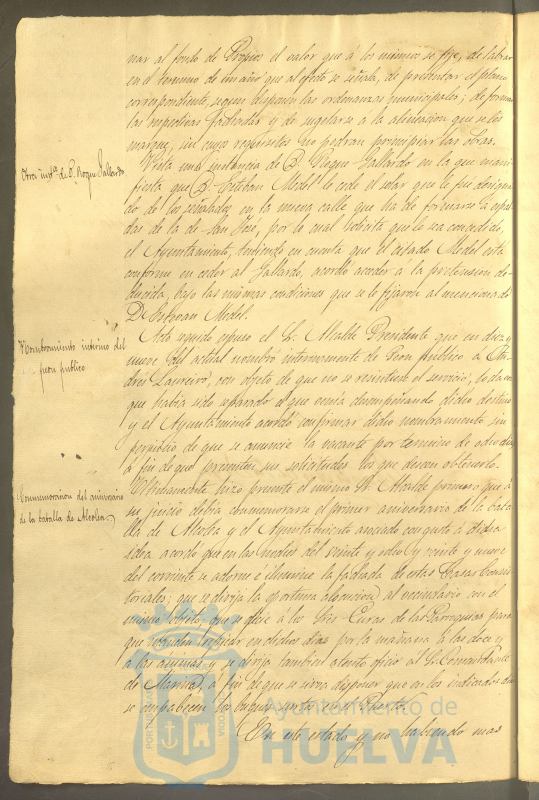 nar al fondo de Propios el valor que á los mismos se fije, de labrar
en el termino de un año que al efecto se señala, de presentar el plano
correspondiente, segun disponen las ordenanzas municipales; de formar
las respectivas fachadas y de sugetarse a la alineacion que se les
marque, sin cuyos requisitos no podran principiar las obras.
Otra inst.ª de D. Roque Gallardo
Vista una instancia de D. Roque Gallardo en la que mani-
fiesta que D. Esteban Medel le cede el solar que le fue designa-
do de los señalados en la nueva calle que ha de formarse a espal-
das de la de San José, por lo cual solicita que le sea concedido,
el Ayuntamiento, teniendo en cuenta que el citado Medel está
conforme en ceder al Gallardo, acordó acceder a la pretension de-
ducida, bajo las mismas condiciones que se le fijaron al mencionado
D. Esteban Medel.
Nombramiento interino del
peon publico
Acto seguido espuso el Sr. Alcalde Presidente que en diez y
nueve del actual nombró interinamente de Peon publico a
Laureiro, con objeto de que no se resintiera el servicio, toda vez
que habia sido separado el que venia desempeñando dicho destino
y el Ayuntamiento acordó confirmar dicho nombramiento sin
perjuicio de que se anuncie la vacante por termino de ocho dias
a fin de que presenten sus solicitudes los que deseen obtenerlo.
Conmemoracion del aniversario
de la batalla de Alcolea
Ultimamente hizo presente el mismo Sr. Alcalde primero que á
su juicio debia conmemorarse el primer aniversario de la bata-
lla de Alcolea y el Ayuntamiento asociado con gusto á dicha
idea acordó que en las noches del veinte y ocho y veinte y nueve
del corriente se adorne é ilumine la fachada de estas Casas Consis-
toriales; que se dirija la oportuna alocucion al vecindario con el
mismo objeto, que se oficie á los Sres Curas de las Parroquias para
que manden repicar en dichos dias por la mañana a las doce y
a las animas y se dirija tambien atento oficio al Sr. Comandante
de Marina, á fin de que se sirva disponer que en los indicados dias
se empabecen los buques surtos en este Puerto.
En este estado y no habiendo mas
PORTUS MARIS
CUSTODIA
Ayuntamiento de
HUELVA